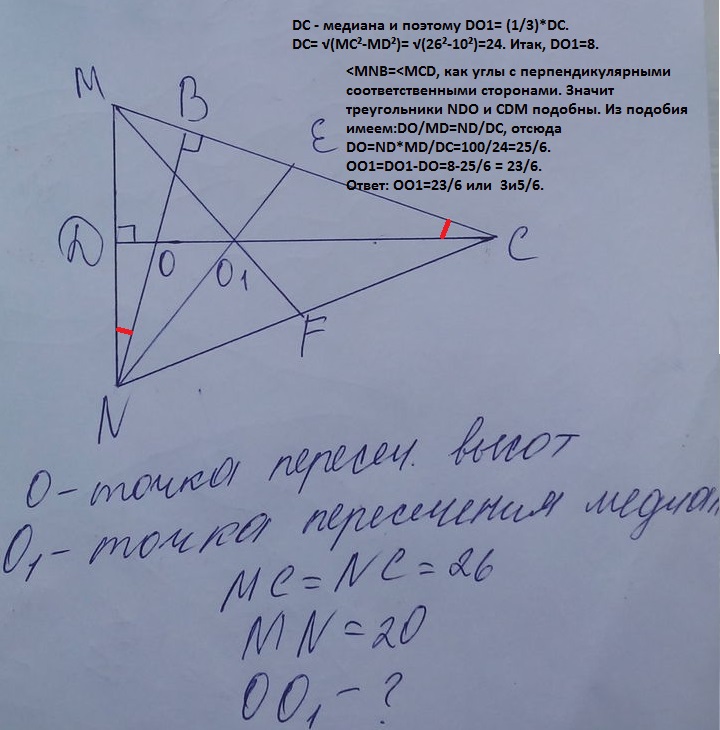 DC - медиана и поэтому DO1= (1/3)*DC.
DC= √(MC²-MD²)= √(26²-10²)=24. Итак, DO1=8.
<MNB=<MCD, как углы с перпендикулярными
соответственными сторонами. Значит
треугольники NDO и CDM подобны. Из подобия
имеем:DO/MD=ND/DC, отсюда
DO=ND*MD/DC=100/24=25/6.
OO1=DO1-DO=8-25/6 = 23/6.
Ответ: OO1=23/6 или 3и5/6.
M
B
E
D
O
O₁
C
F
N
O - точка пересеч. высот
O₁ - точка пересечения медиан
MC = NC = 26
MN = 20
OO₁ - ?